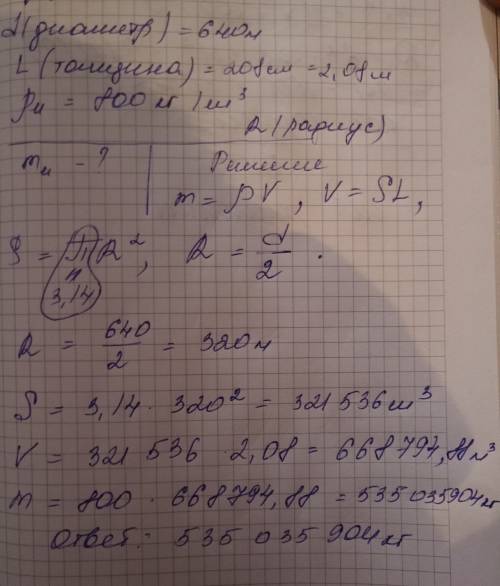 d (диаметр) = 640м
L (толщина) = 208см = 2,08м
ρи = 800 кг / м³
R (радиус)
mи - ?
Решение
m = ρV, V = SL,
S = πR², R = d/2.
π
3,14
R = 640/2 = 320м
S = 3,14 · 320² = 321 536 м³
V = 321 536 · 2,08 = 668794,88м³
m = 800 · 668794,88 = 535035904кг
Ответ: 535 035 904 кг